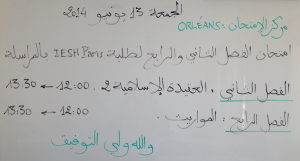 الجمعة 13 يونيو 2014
مركز الامتحان: ORLÉANS
امتحان الفصل الثاني والرابع لطلبة IESH Paris بالمراسلة
الفصل الثاني: العقيدة الإسلامية 2. 12:00 ← 13:30
الفصل الرابع: المواريث. 12:00 ← 13:30
والله ولي التوفيق